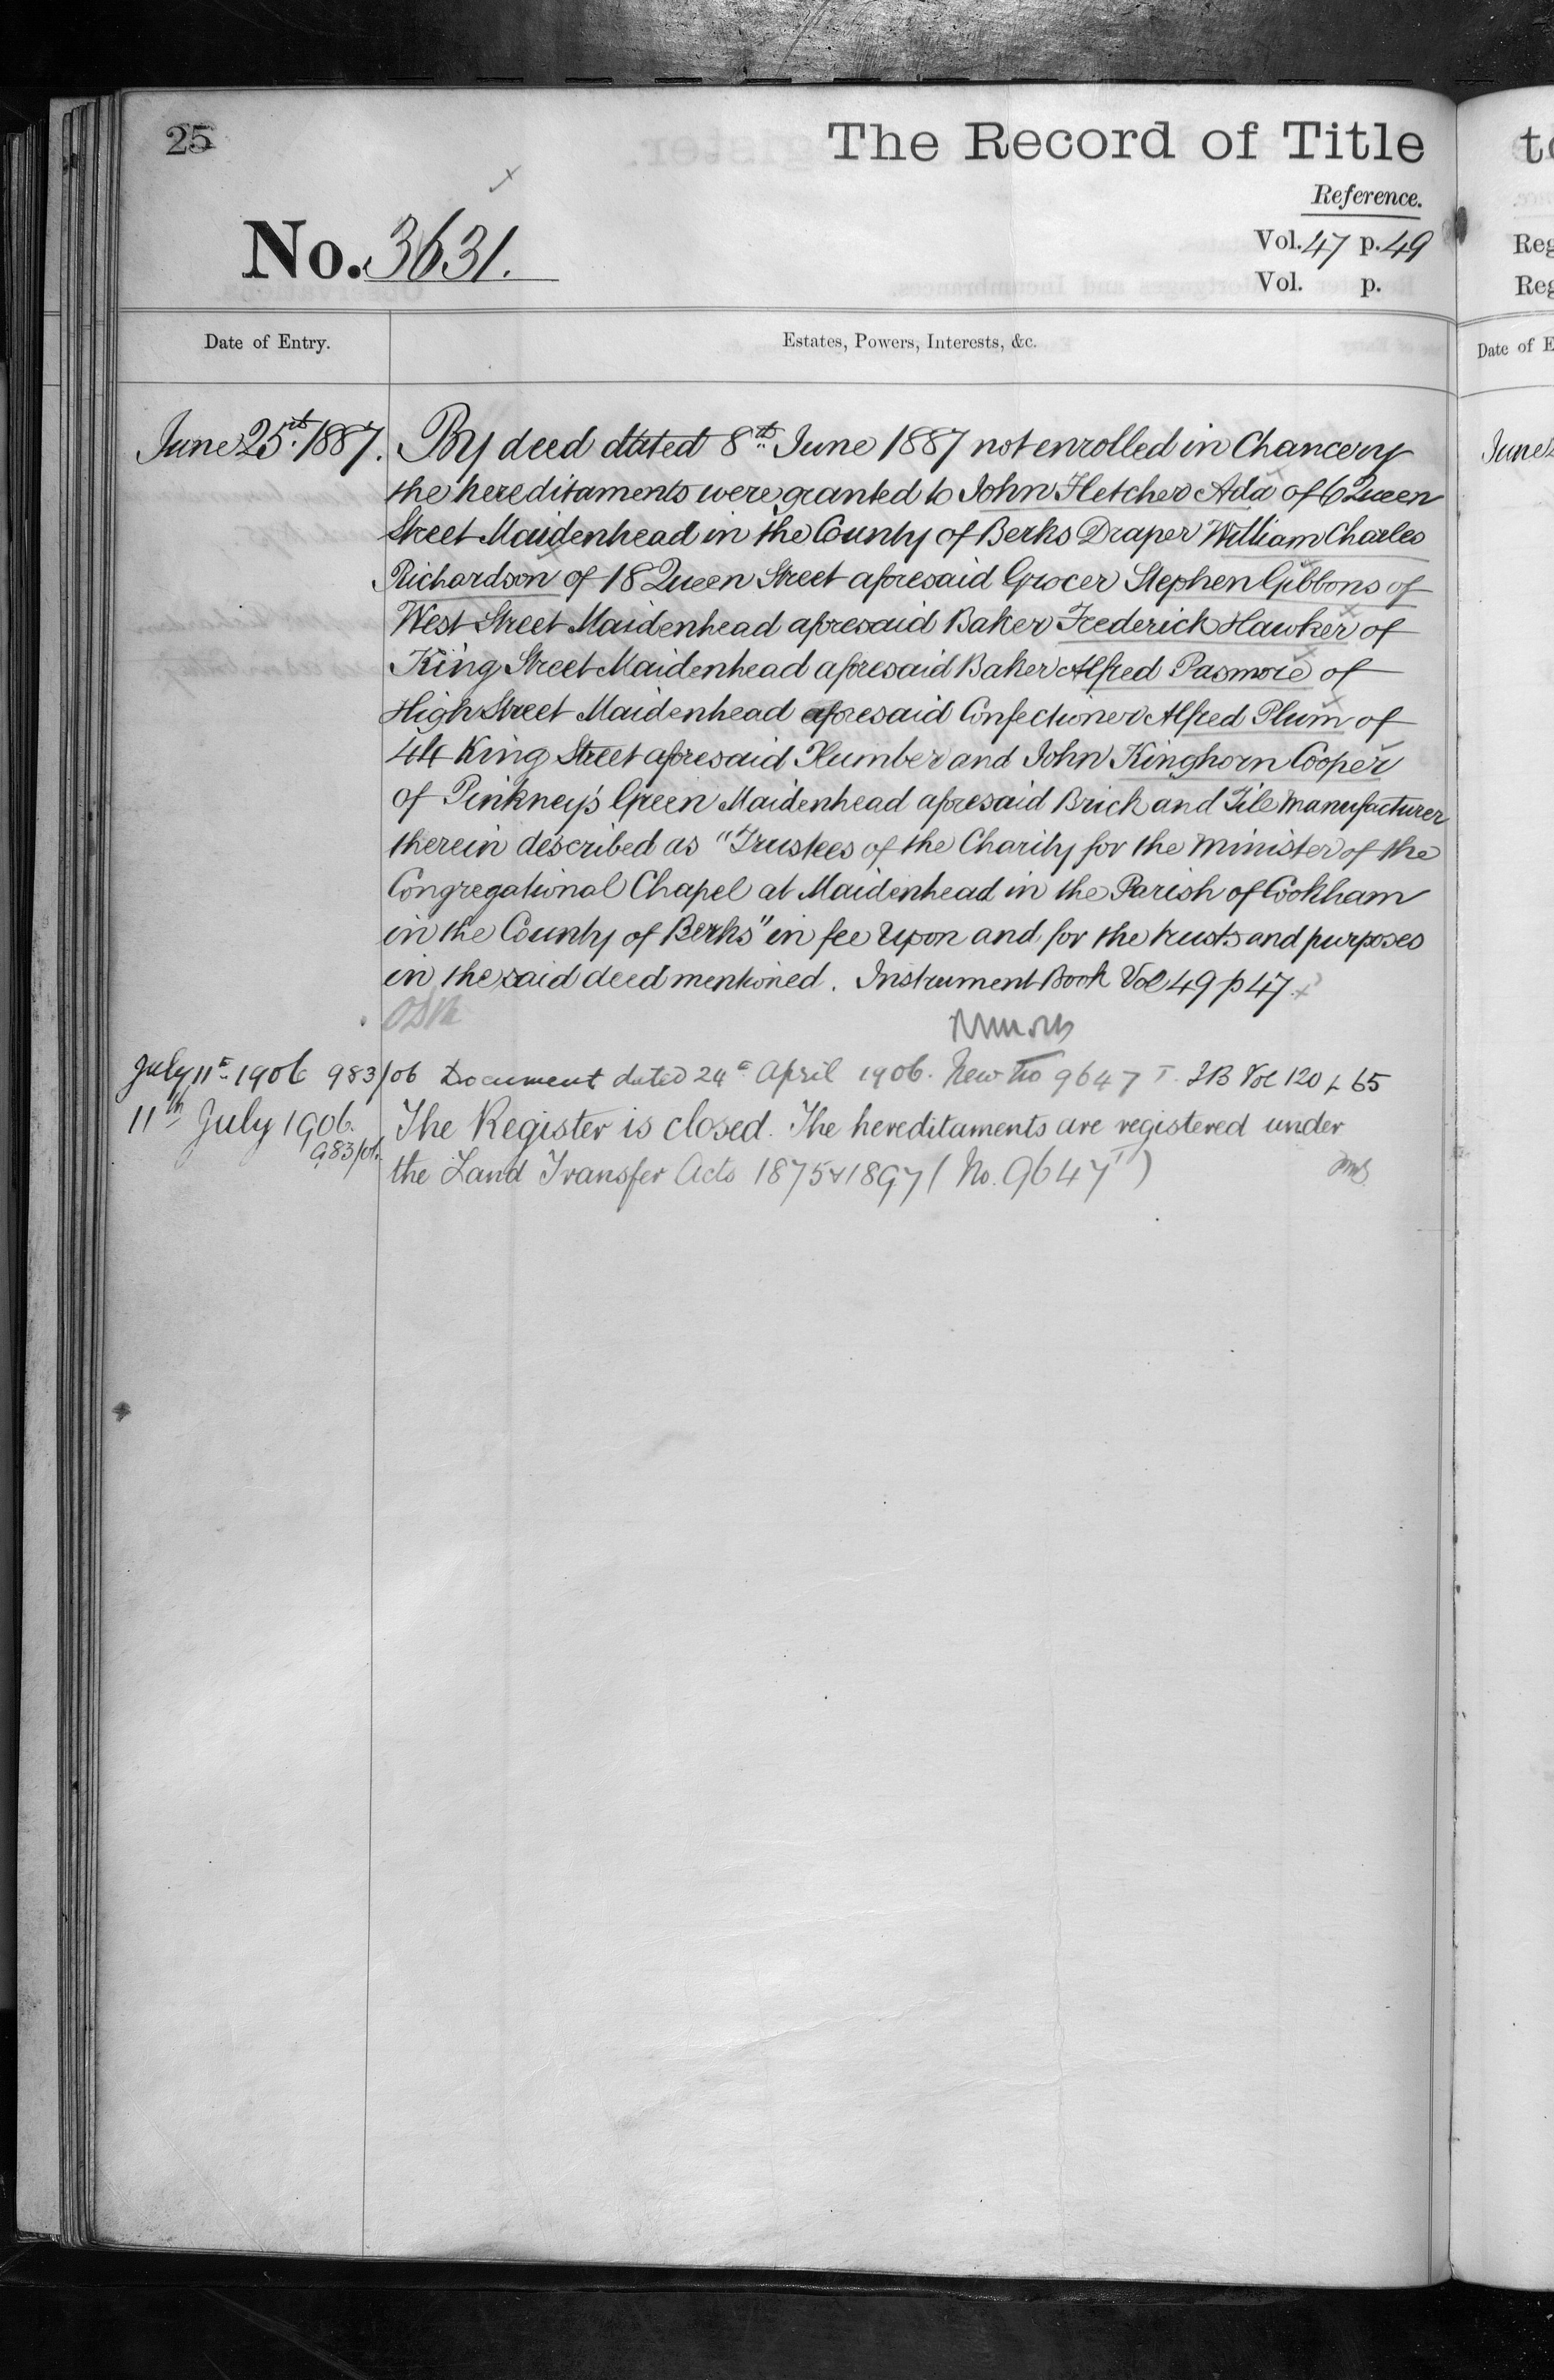 25
The Record of Title
Reference.
No. 3631.
Vol. 47 p. 49
Vol. p.
Date of Entry.
Estates, Powers, Interests, &c.
June 25th 1887.
By deed dated 8th June 1887 not enrolled in Chancery
the hereditaments were granted to John Fletcher Ada of 6 Queen
Street Maidenhead in the County of Berks Draper William Charles
Richardson of 18 Queen Street aforesaid Grocer Stephen Gibbons of
West Street Maidenhead aforesaid Baker Frederick Hawker of
King Street Maidenhead aforesaid Baker Alfred Pasmore of
High Street Maidenhead aforesaid Confectioner Alfred Plum of
44 King Street aforesaid Plumber and John Kinghorn Cooper
of Pinkney's Green Maidenhead aforesaid Brick and Tile Manufacturer
therein described as "Trustees of the Charity for the Minister of the
Congregational Chapel at Maidenhead in the Parish of Cookham
in the County of Berks" in fee Upon and for the trusts and purposes
in the said deed mentioned. Instrument Book Vol 49 p 47
July 11th 1906 983/06 Document dated 24th April 1906. New No 9647 T. IB Vol 120 p 65
11th July 1906.
983/06.
The Register is closed. The hereditaments are registered under
the Land Transfer Acts 1875 & 1897 (No. 9647 T)
to
Reg
Reg
Date of E
June